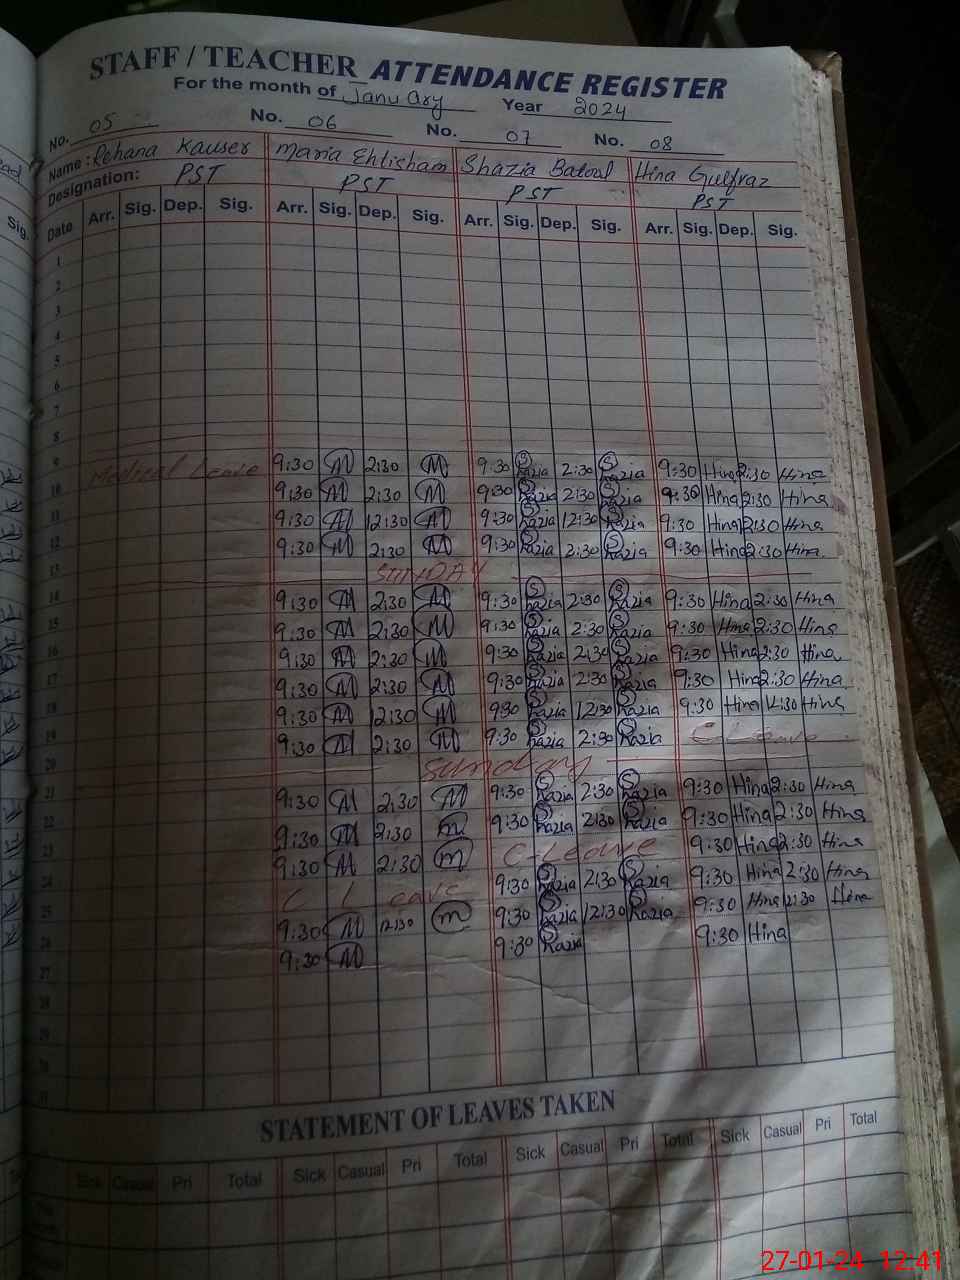 STAFF / TEACHER ATTENDANCE REGISTER
For the month of January Year 2024
No. 05 No. 06 No. 07 No. 08
Name: Rehana Kauser Maria Ehtisham Shazia Batool Hina Gulfraz
Designation: PST PST PST PST
Date Arr. Sig. Dep. Sig. Arr. Sig. Dep. Sig. Arr. Sig. Dep. Sig. Arr. Sig. Dep. Sig.
1
2
3
4
5
6
7
8
9 Medical Leave 9:30 M 2:30 M 9:30 Shazia 2:30 Shazia 9:30 Hina 2:30 Hina
10 9:30 M 2:30 M 9:30 Shazia 2:30 Shazia 9:30 Hina 2:30 Hina
11 9:30 M 12:30 M 9:30 Shazia 12:30 Shazia 9:30 Hina 12:30 Hina
12 9:30 M 2:30 M 9:30 Shazia 2:30 Shazia 9:30 Hina 2:30 Hina
13 SUNDAY
14 9:30 M 2:30 M 9:30 Shazia 2:30 Shazia 9:30 Hina 2:30 Hina
15 9:30 M 2:30 M 9:30 Shazia 2:30 Shazia 9:30 Hina 2:30 Hina
16 9:30 M 2:30 M 9:30 Shazia 2:30 Shazia 9:30 Hina 2:30 Hina
17 9:30 M 2:30 M 9:30 Shazia 2:30 Shazia 9:30 Hina 2:30 Hina
18 9:30 M 12:30 M 9:30 Shazia 12:30 Shazia 9:30 Hina 12:30 Hina
19 9:30 M 2:30 M 9:30 Shazia 2:30 Shazia C Leave
20 Sunday
21 9:30 M 2:30 M 9:30 Shazia 2:30 Shazia 9:30 Hina 2:30 Hina
22 9:30 M 2:30 m 9:30 Shazia 2:30 Shazia 9:30 Hina 2:30 Hina
23 9:30 M 2:30 m C-Leave 9:30 Hina 2:30 Hina
24 C Leave 9:30 Shazia 2:30 Shazia 9:30 Hina 2:30 Hina
25 9:30 M 12:30 m 9:30 Shazia 12:30 Shazia 9:30 Hina 12:30 Hina
26 9:30 M 9:30 Shazia 9:30 Hina
27
28
29
30
31
STATEMENT OF LEAVES TAKEN
Sick Casual Pri Total Sick Casual Pri Total Sick Casual Pri Total Sick Casual Pri Total
27-01-24 12:41